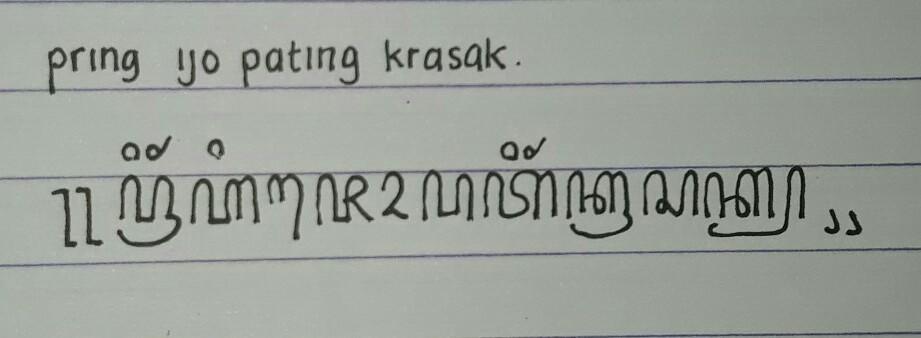 pring ijo pating krasak.
꧋ꦥꦿꦶꦁꦲꦶꦗꦺꦴꦥꦠꦶꦁꦏꦿꦱꦏ꧀꧉